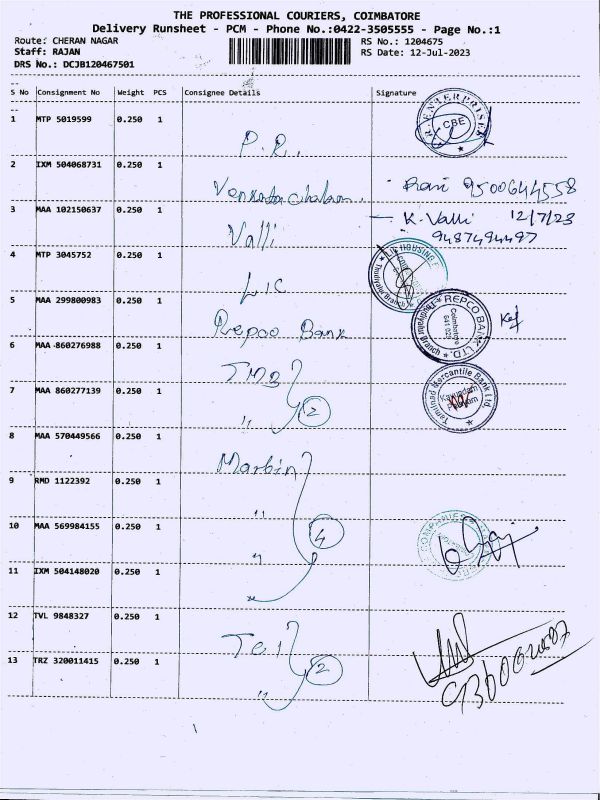 THE PROFESSIONAL COURIERS, COIMBATORE
Delivery Runsheet - PCM - Phone No.:0422-3505555 - Page No.:1
Route: CHERAN NAGAR RS No.: 1204675
Staff: RAJAN RS Date: 12-Jul-2023
DRS No.: DCJB120467501
S No Consignment No Weight PCS Consignee Details Signature
1 MTP 5019599 0.250 1 P.R. ENTERPRISE CBE
2 IXM 504068731 0.250 1 Venkatachalam. - Rani 9500644558
3 MAA 102150637 0.250 1 Valli - K. Valli 12/7/23
9487494497
4 MTP 3045752 0.250 1 LIC HOUSING Thudiyalur Branch
5 MAA 299800983 0.250 1 Repco Bank REPCO BANK LTD. Thudiyalur Branch Coimbatore 641 029
6 MAA 860276988 0.250 1 TMB
7 MAA 860277139 0.250 1 " 2 Tamilnad Mercantile Bank Ltd.
8 MAA 570449566 0.250 1 Marbin
9 RMD 1122392 0.250 1 "
10 MAA 569984155 0.250 1 " 4
11 IXM 504148020 0.250 1
12 TVL 9848327 0.250 1
13 TRZ 320011415 0.250 1 " 2